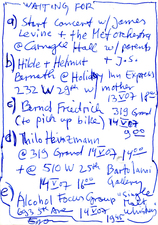 WAITING FOR
a) Start concert w/ James
Levine + the Met orchestra
@ Carnegie Hall w/ parents
+ J.S.
b) Hilde + Helmut
Berneth @ Holiday Inn Express
232 W 29th w/ mother
13 V 07 18:00
c) Bernd Friedrich
(to pick up bike)
319 Grand
14 V 07
9:00
d) Thilo Heinzmann
@ 319 Grand 14 V 07 14:00
+ @ 510 W 25th Bartolami
14 V 07 16:00 Gallery
e) Alcohol Focus Group
whiskey
14 V 07